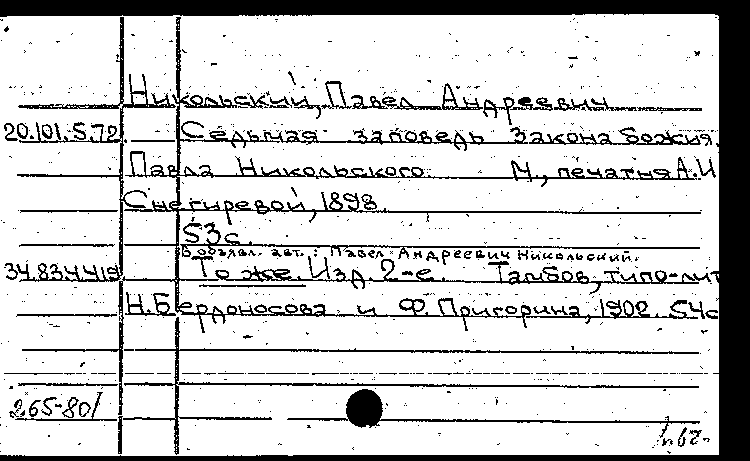 Никольский, Павел Андреевич
20.101.5.72 Седьмая заповедь Закона Божия.
Павла Никольского. М., печатня А.И
Снегиревой, 1898.
53с.
В оглавл. авт.: Павел Андреевич Никольский.
34.83.4.419 То же. Изд. 2-е. Тамбов, типо-лит
Н. Бердоносова и Ф. Пригорина, 1902. 54с
265-80/